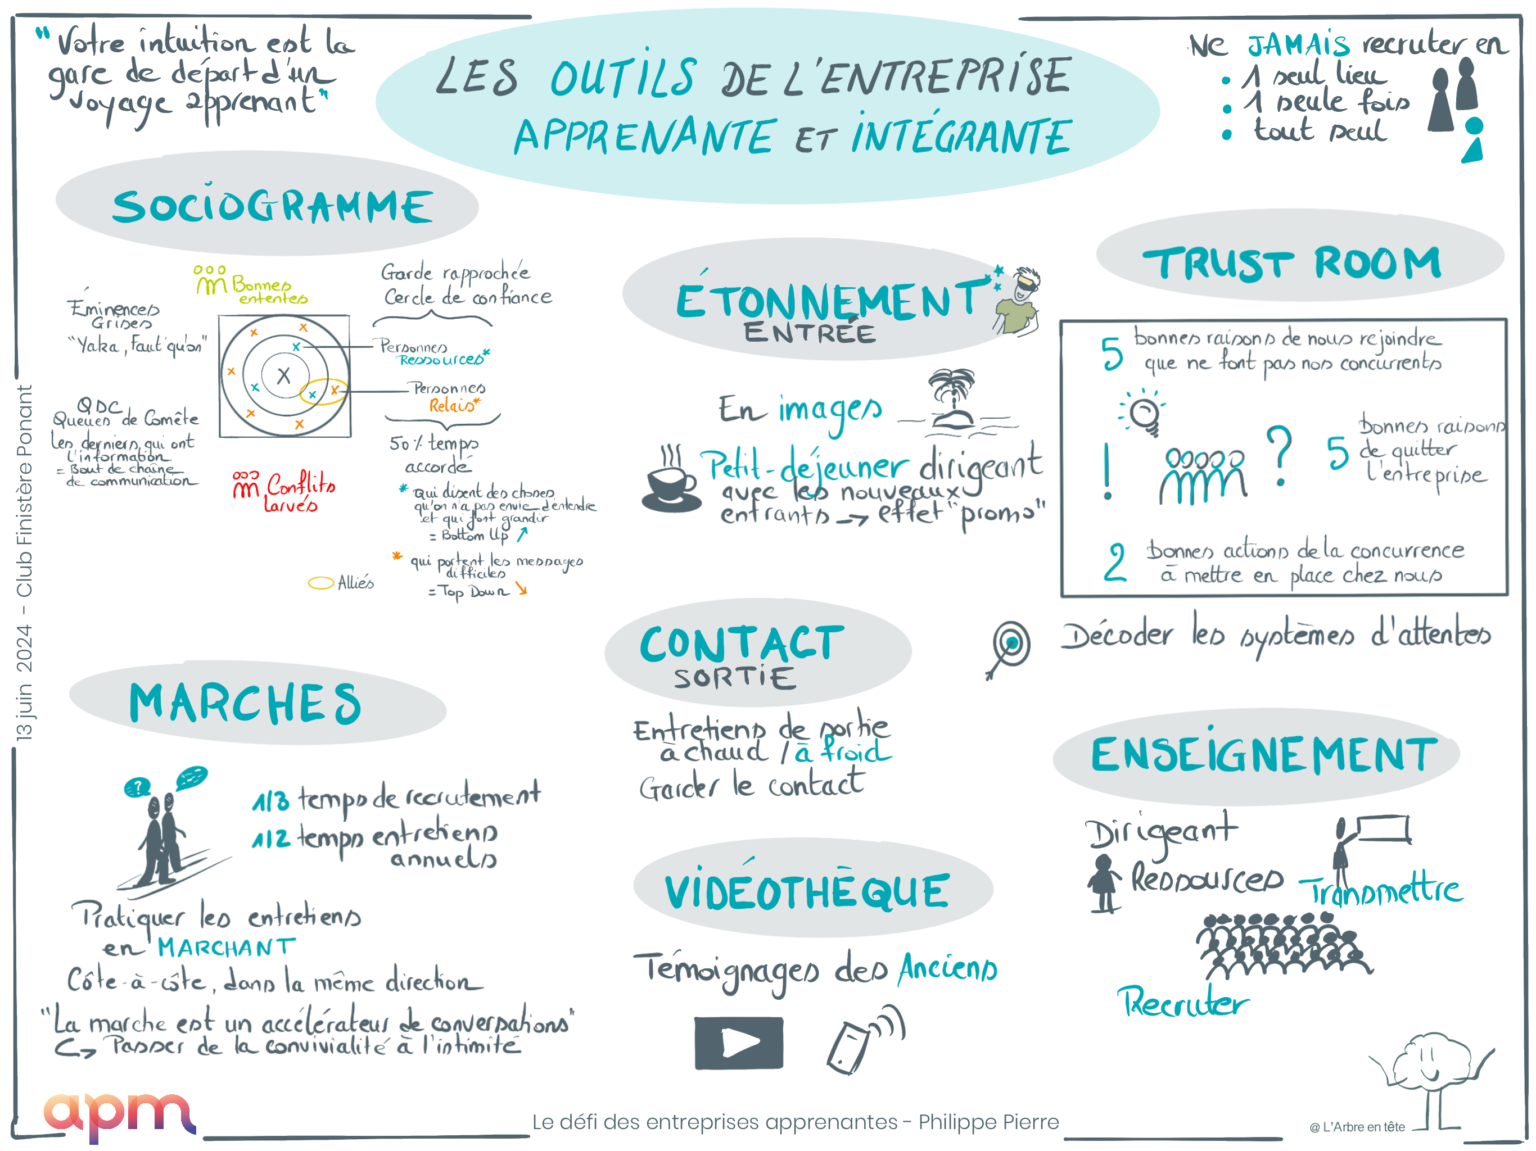 "Votre intuition est la
gare de départ d'un
voyage apprenant"
LES OUTILS DE L'ENTREPRISE
APPRENANTE ET INTÉGRANTE
Ne JAMAIS recruter en
• 1 seul lieu
• 1 seule fois
• tout seul
SOCIOGRAMME
Bonnes
ententes
Éminences
Grises
"Yaka, Faut qu'on"
QDC
Queues de Comête
les derniers qui ont
l'information
= Bout de chaîne
de communication
Garde rapprochée
Cercle de confiance
Personnes
Ressources*
Personnes
Relais*
50% temps
accordé
* qui disent des choses
qu'on n'a pas envie d'entendre
et qui font grandir
= Bottom Up
* qui portent les messages
difficiles
= Top Down
Conflits
larvés
Alliés
ÉTONNEMENT
ENTRÉE
En images
Petit-déjeuner dirigeant
avec les nouveaux
entrants → effet "promo"
TRUST ROOM
5 bonnes raisons de nous rejoindre
que ne font pas nos concurrents
! ?
5 bonnes raisons
de quitter
l'entreprise
2 bonnes actions de la concurrence
à mettre en place chez nous
Décoder les systèmes d'attentes
CONTACT
SORTIE
Entretiens de sortie
à chaud / à froid
Garder le contact
MARCHES
?
1/3 temps de recrutement
1/2 temps entretiens
annuels
Pratiquer les entretiens
en MARCHANT
Côte-à-côte, dans la même direction
"La marche est un accélérateur de conversations"
↪ Passer de la convivialité à l'intimité
VIDÉOTHÈQUE
Témoignages des Anciens
ENSEIGNEMENT
Dirigeant
Ressources
Transmettre
Recruter
13 juin 2024 - Club Finistère Ponant
apm
Le défi des entreprises apprenantes - Philippe Pierre
@ L'Arbre en tête